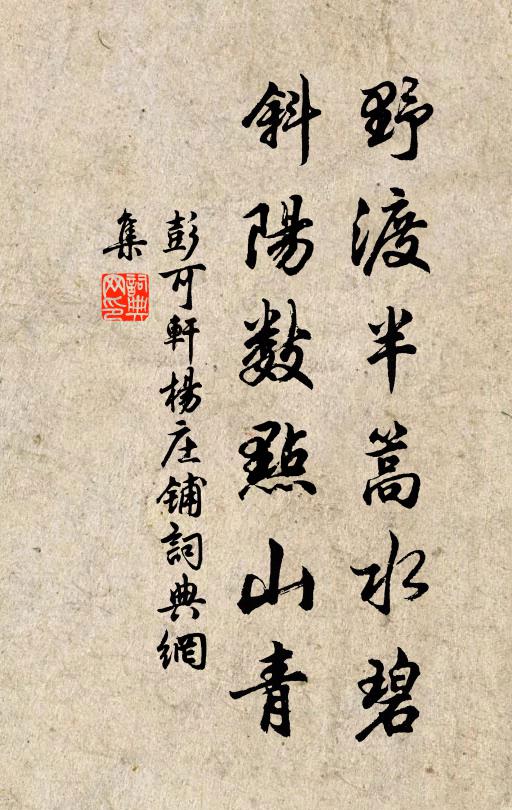 野渡半篙水碧
斜陽数點山青
彭可軒楊庄鋪詞典網
集
詞典
网印